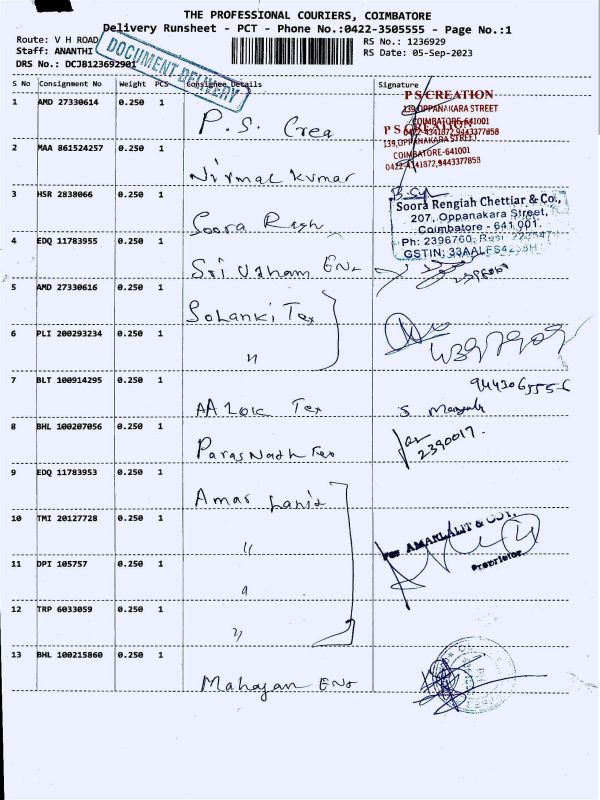 THE PROFESSIONAL COURIERS, COIMBATORE
Delivery Runsheet - PCT - Phone No.:0422-3505555 - Page No.:1
Route: V H ROAD
RS No.: 1236929
Staff: ANANTHI
RS Date: 05-Sep-2023
DRS No.: DCJB123692901
DOCUMENT DELIVERY
S No Consignment No Weight PCS Consignee Details Signature
1 AMD 27330614 0.250 1 P.S. Crea
P S CREATION
139, OPPANAKARA STREET
COIMBATORE-641001
0422-4341872, 9443377858
P S CREATION
139, OPPANAKARA STREET
COIMBATORE-641001
0422-4341872, 9443377858
2 MAA 861524257 0.250 1 Nirmal Kumar
3 HSR 2838066 0.250 1 Soora Regh
Soora Rengiah Chettiar & Co.,
207, Oppanakara Street,
Coimbatore - 641 001.
Ph: 2396760, Resi
GSTIN: 33AALFS4238H
4 EDQ 11783955 0.250 1 Sri Udham Ent
5 AMD 27330616 0.250 1 Solanki Tex
6 PLI 200293234 0.250 1 "
7 BLT 100914295 0.250 1 AA Lok Tex
8 BHL 100207056 0.250 1 Paras Nadh Tex
2390017.
9 EDQ 11783953 0.250 1 Amar Lanit
10 TMI 20127728 0.250 1 "
For AMARLALIT & COY.
Proprietor
11 DPI 105757 0.250 1 "
12 TRP 6033059 0.250 1 "
13 BHL 100215860 0.250 1 Mahajan Ent